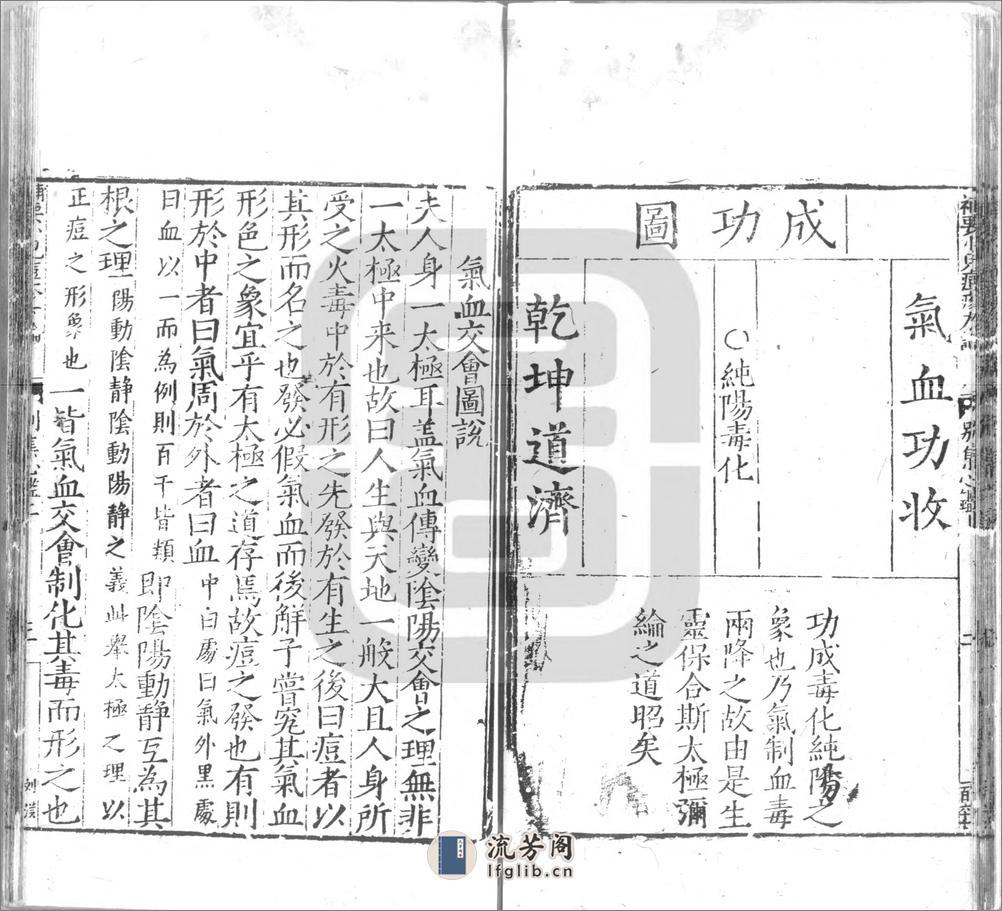 成功圖
氣血功收
〇純陽毒化
乾坤道濟
功成毒化純陽之
象也乃氣制血毒
兩降之故由是生
靈保合斯太極彌
綸之道昭矣
氣血交會圖說
夫人身一太極耳盖氣血傳變陰陽交會之理無非
一太極中来也故曰人生與天地一般大且人身所
受之火毒中於有形之先發於有生之後曰痘者以
其形而名之也發必假氣血而後解子嘗究其氣血
形色之象宜乎有太極之道存焉故痘之發也有則
形於中者曰氣周於外者曰血中白處曰氣外黑處
曰血以一而為例則百千皆類即陰陽動静互為其
根之理陽動陰静陰動陽静之義此舉太極之理以
正痘之形象也一皆氣血交會制化其毒而形之也
流芳阁
lfglib.cn